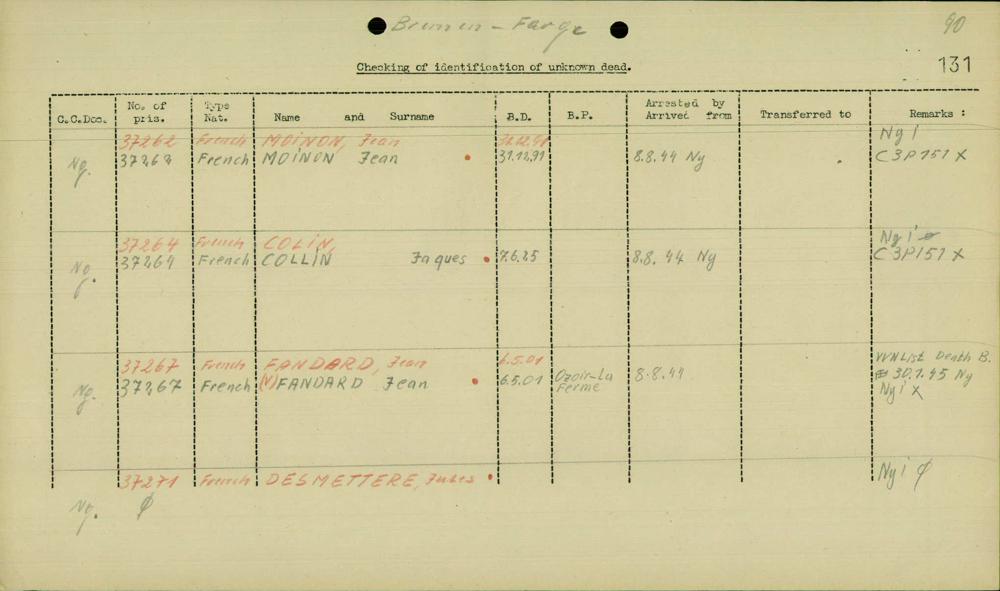 Bremen - Farge
90
Checking of identification of unknown dead.
131
C.C.Doc. No. of pris. Type Nat. Name and Surname B.D. B.P. Arrested by Arrived from Transferred to Remarks :
37262 French MOINON, Jean 31.12.91 Ny i
Ng. 37262 French MOINON Jean 31.12.91 8.8.44 Ny C3P151 X
37264 French COLIN, Ny i
Ng. 37264 French COLLIN Jaques 7.6.25 8.8.44 Ny C3P151 X
37267 French FANDARD, Jean 6.5.01 VVN List Death B.
Ng. 37267 French (V)FANDARD Jean 6.5.01 Ozoir-La Ferme 8.8.44 30.1.45 Ny
Ny i X
37271 French DESMETTERE, Jules Ny i Ø
Ng. Ø